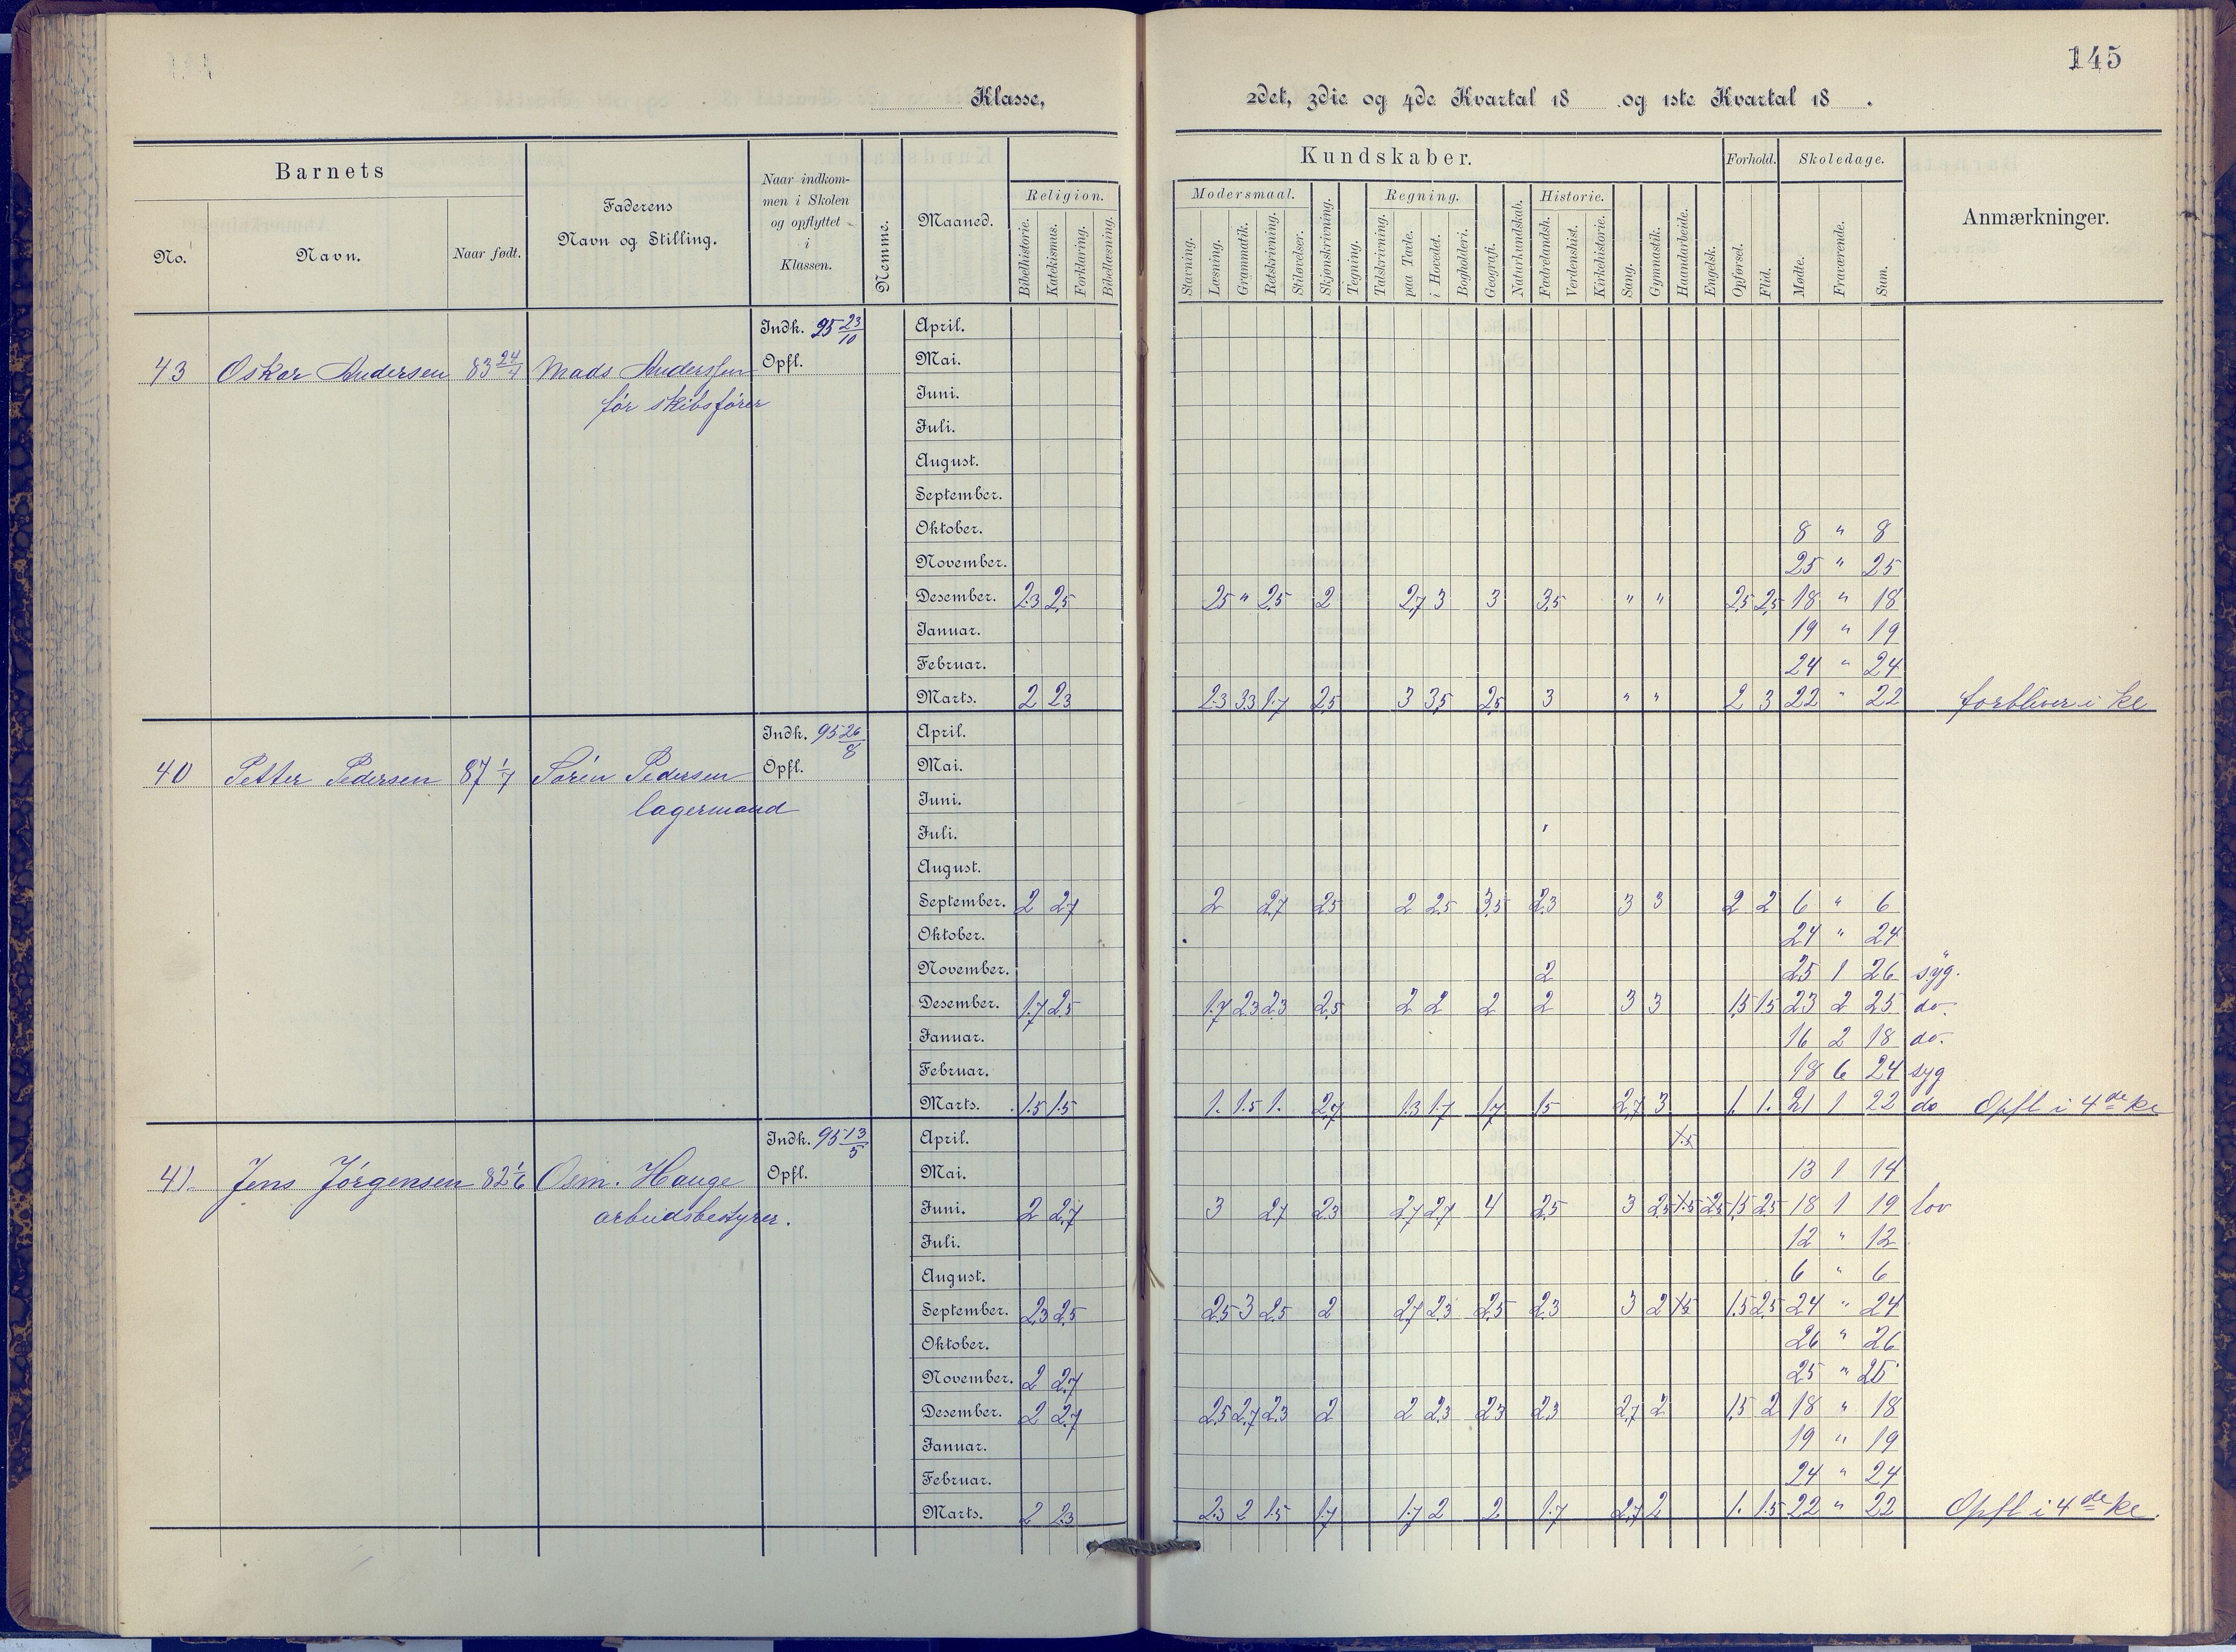 145
Klasse, 2det, 3die og 4de Kvartal 18 og 1ste Kvartal 18 .
Barnets
No. Navn. Naar født.
Faderens Navn og Stilling.
Naar indkommen i Skolen og opflyttet i Klassen.
Nemme.
Maaned.
Kundskaber.
Religion.
Bibelhistorie. Katekismus. Forklaring. Bibellæsning.
Modersmaal.
Stavning. Læsning. Grammatik. Retskrivning. Stiløvelser. Skjønskrivning. Tegning.
Regning.
Talskrivning. paa Tavle. i Hovedet. Bogholderi. Geografi. Naturkundskab.
Historie.
Fædrelandsh. Verdenshist. Kirkehistorie. Sang. Gymnastik. Haandarbeide. Engelsk.
Forhold.
Opførsel. Flid.
Skoledage.
Mødte. Fraværende. Sum.
Anmærkninger.
Indk. 95 23/10 April.
43 Oskar Andersen 83 24/4 Mads Anderssen Opfl. Mai.
før skibsfører Juni.
Juli.
August.
September.
Oktober. 8 " 8
November. 25 " 25
Desember. 2.3 2.5 25 " 2.5 2 2.7 3 3 3.5 " " 2.5 2.5 18 " 18
Januar. 19 " 19
Februar. 24 " 24
Marts. 2 23 2.3 3.3 1.7 2.5 3 3.5 2.5 3 " " 2 3 22 " 22 forbliver i kl
Indk. 95 26/8 April.
40 Petter Pedersen 87 1/7 Sørin Pedersen Opfl. Mai.
lagermand Juni.
Juli.
August.
September. 2 2.7 2 2.7 2.5 2 2.5 3.5 2.3 3 3 2 2 6 " 6
Oktober. 24 " 24
November. 2 25 1 26 syg.
Desember. 1.7 2.5 1.7 2.3 2.3 2.5 2 2 2 2 3 3 1.5 1.5 23 2 25 do.
Januar. 16 2 18 do.
Februar. 18 6 24 syg
Marts. 1.5 1.5 1. 1.5 1. 2.7 1.3 1.7 1.7 1.5 2.7 3 1. 1. 21 1 22 do Opfl i 4de kl
Indk. 95 13/5 April. 1.5
41. Jens Jörgensen 82 1/6 Osm. Hauge Opfl. Mai. 13 1 14
arbeidsbestyrer. Juni. 2 2.7 3 2.7 2.3 2.7 2.7 4 2.5 3 2.5 1.5 2.5 1.5 2.5 18 1 19 lov
Juli. 12 " 12
August. 6 " 6
September. 2.3 2.5 2.5 3 2.5 2 2.7 2.3 2.5 2.3 3 2 1.5 1.5 2.5 24 " 24
Oktober. 26 " 26
November. 2 2.7 25 " 25
Desember. 2 2.7 2.5 2.7 2.3 2 2 2.3 2.3 2.3 2.7 2 1.5 2 18 " 18
Januar. 19 " 19
Februar. 24 " 24
Marts. 2 2.3 2.3 2 1.5 1.7 1.7 2 2 1.7 2.7 2 1. 1.5 22 " 22 Opfl i 4de kl.